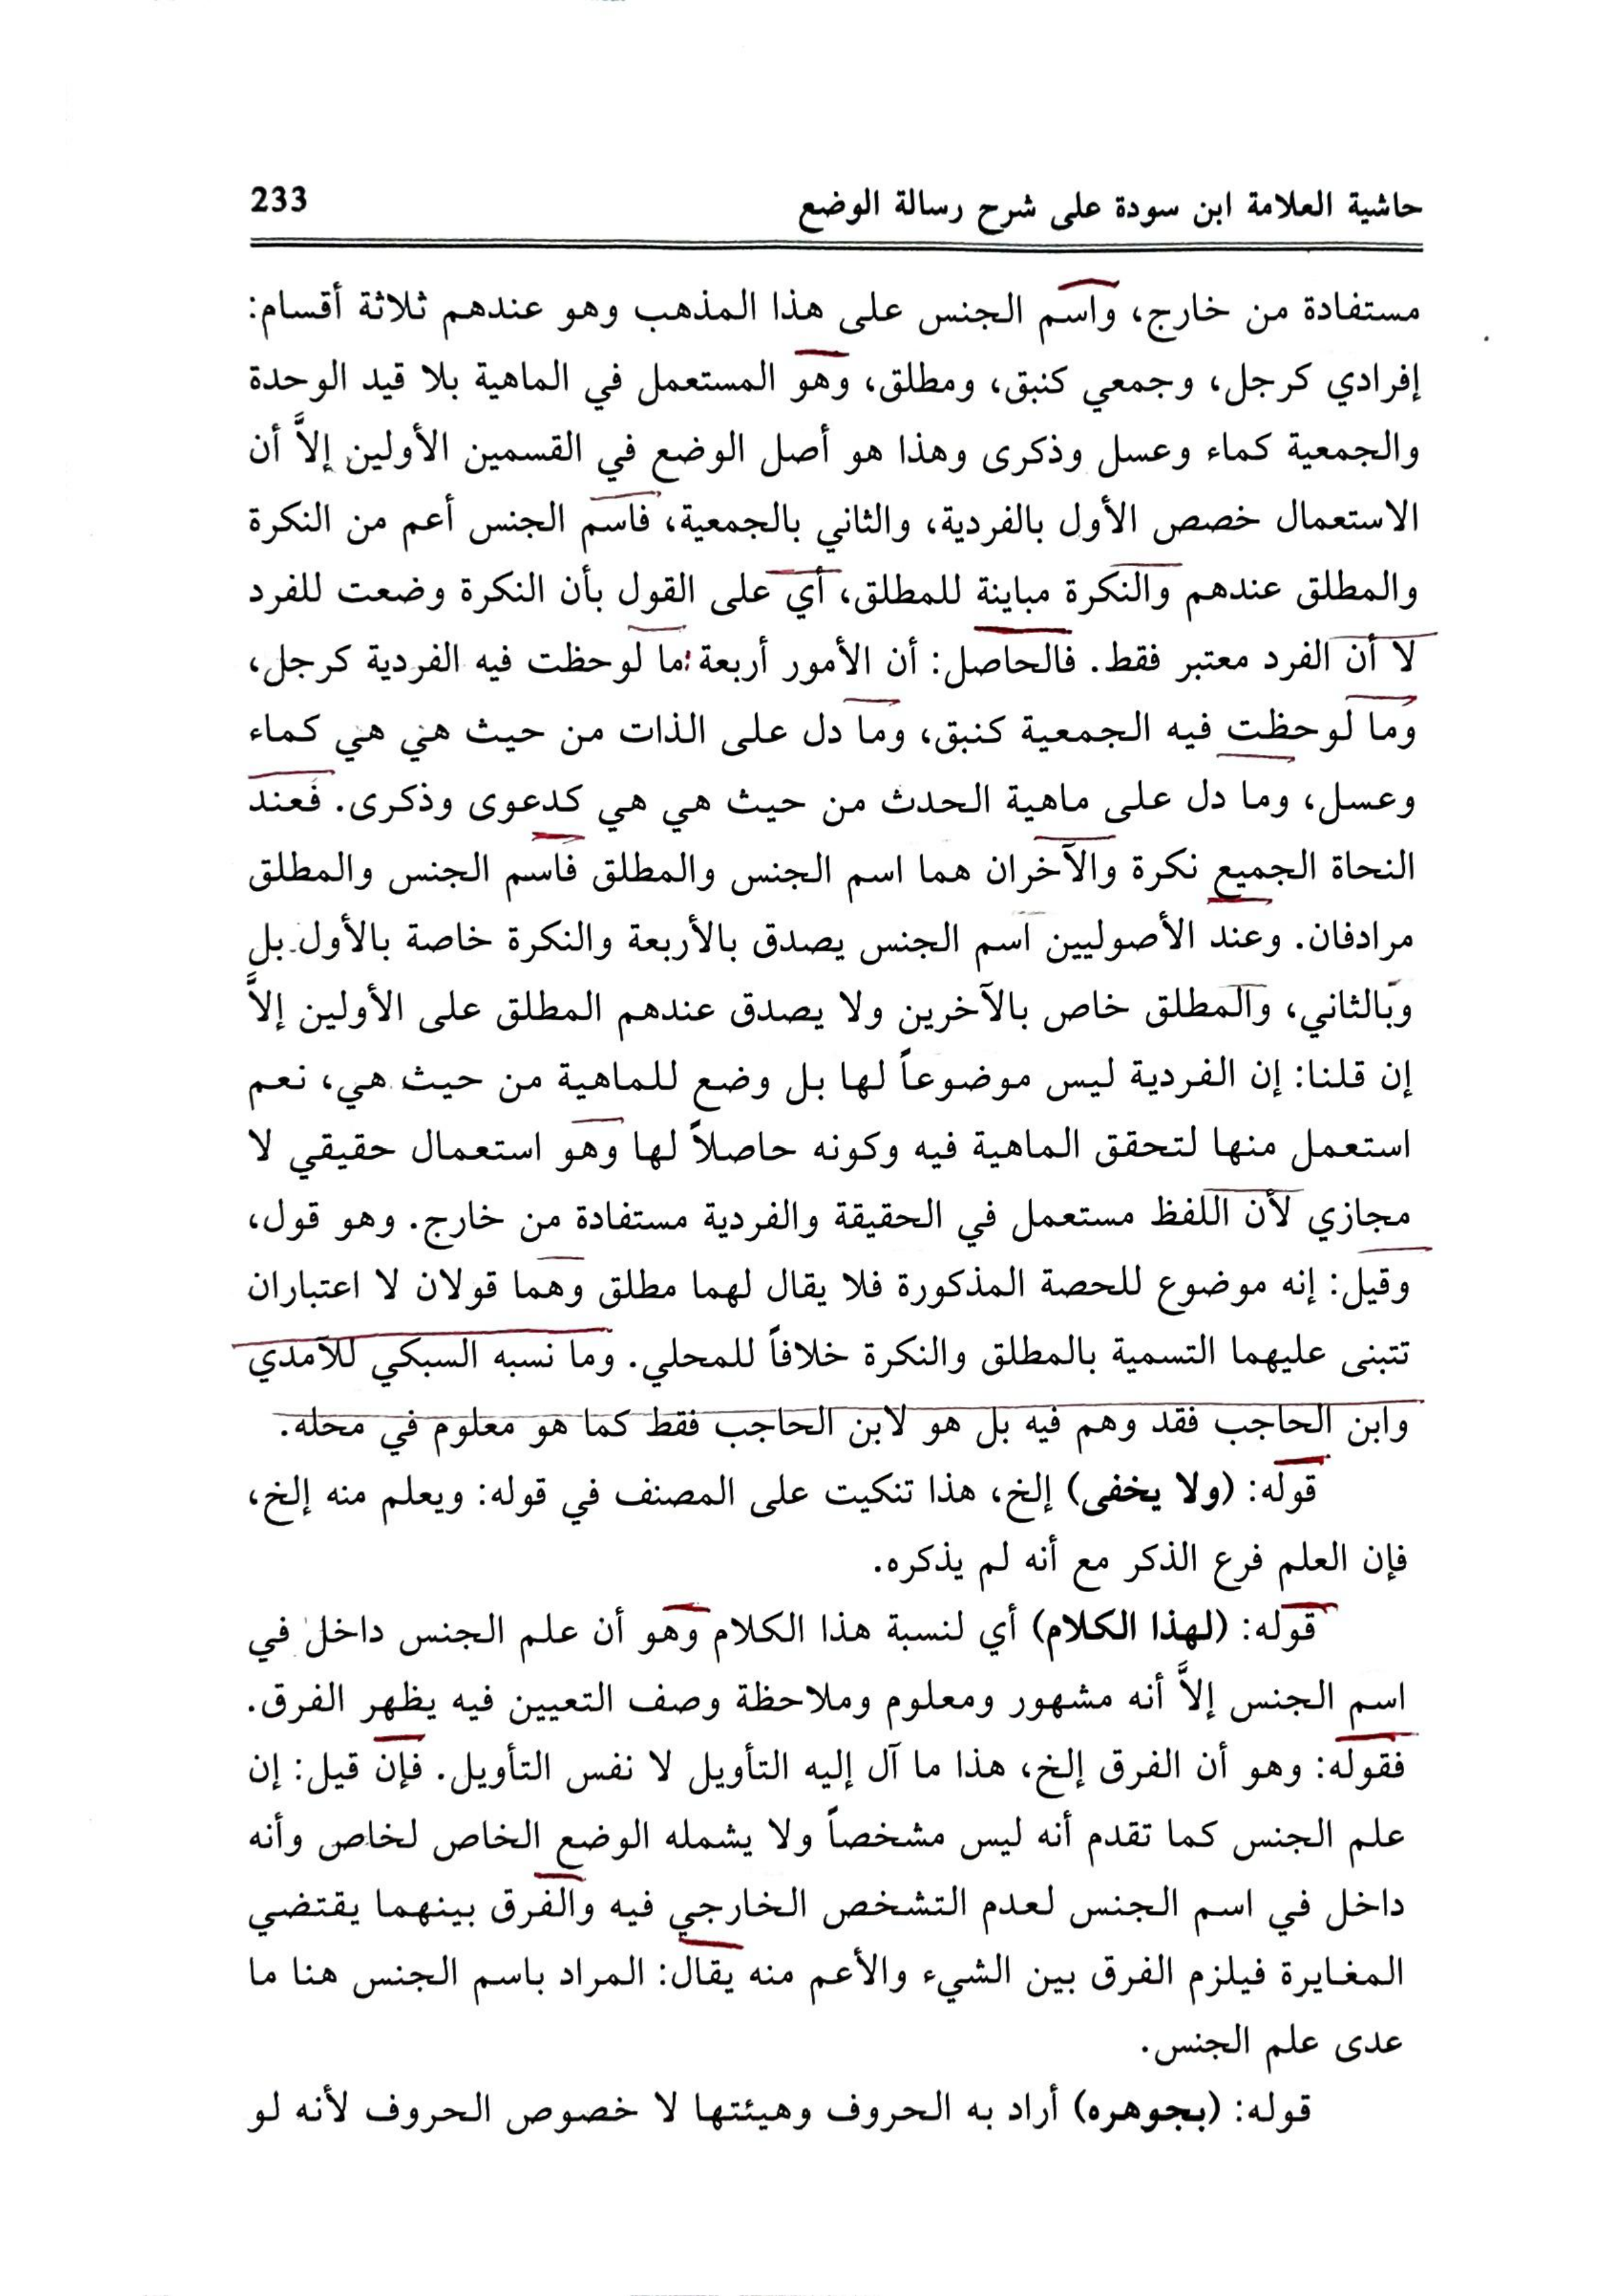 حاشية العلامة ابن سودة على شرح رسالة الوضع 233
مستفادة من خارج، واسم الجنس على هذا المذهب وهو عندهم ثلاثة أقسام:
إفرادي كرجل، وجمعي كنبق، ومطلق، وهو المستعمل في الماهية بلا قيد الوحدة
والجمعية كماء وعسل وذكرى وهذا هو أصل الوضع في القسمين الأولين إلاَّ أن
الاستعمال خصص الأول بالفردية، والثاني بالجمعية، فاسم الجنس أعم من النكرة
والمطلق عندهم والنكرة مباينة للمطلق، أي على القول بأن النكرة وضعت للفرد
لا أن الفرد معتبر فقط. فالحاصل: أن الأمور أربعة: ما لوحظت فيه الفردية كرجل،
وما لوحظت فيه الجمعية كنبق، وما دل على الذات من حيث هي هي كماء
وعسل، وما دل على ماهية الحدث من حيث هي هي كدعوى وذكرى. فعند
النحاة الجميع نكرة والآخران هما اسم الجنس والمطلق فاسم الجنس والمطلق
مرادفان. وعند الأصوليين اسم الجنس يصدق بالأربعة والنكرة خاصة بالأول بل
وبالثاني، والمطلق خاص بالآخرين ولا يصدق عندهم المطلق على الأولين إلاَّ
إن قلنا: إن الفردية ليس موضوعاً لها بل وضع للماهية من حيث هي، نعم
استعمل منها لتحقق الماهية فيه وكونه حاصلاً لها وهو استعمال حقيقي لا
مجازي لأن اللفظ مستعمل في الحقيقة والفردية مستفادة من خارج. وهو قول،
وقيل: إنه موضوع للحصة المذكورة فلا يقال لهما مطلق وهما قولان لا اعتباران
تتبنى عليهما التسمية بالمطلق والنكرة خلافاً للمحلي. وما نسبه السبكي للآمدي
وابن الحاجب فقد وهم فيه بل هو لابن الحاجب فقط كما هو معلوم في محله.
قوله: (ولا يخفى) إلخ، هذا تنكيت على المصنف في قوله: ويعلم منه إلخ،
فإن العلم فرع الذكر مع أنه لم يذكره.
قوله: (لهذا الكلام) أي لنسبة هذا الكلام وهو أن علم الجنس داخل في
اسم الجنس إلاَّ أنه مشهور ومعلوم وملاحظة وصف التعيين فيه يظهر الفرق.
فقوله: وهو أن الفرق إلخ، هذا ما آل إليه التأويل لا نفس التأويل. فإن قيل: إن
علم الجنس كما تقدم أنه ليس مشخصاً ولا يشمله الوضع الخاص لخاص وأنه
داخل في اسم الجنس لعدم التشخص الخارجي فيه والفرق بينهما يقتضي
المغايرة فيلزم الفرق بين الشيء والأعم منه يقال: المراد باسم الجنس هنا ما
عدى علم الجنس.
قوله: (بجوهره) أراد به الحروف وهيئتها لا خصوص الحروف لأنه لو